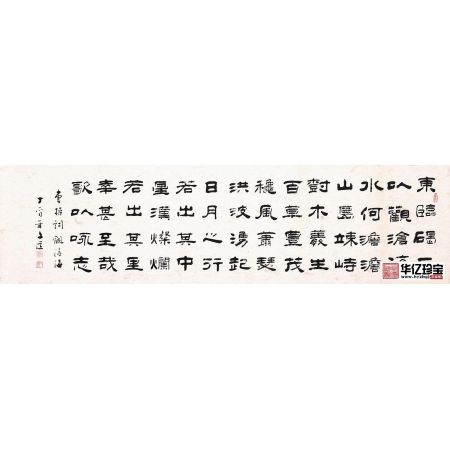 東臨碣石
以觀滄海
水何澹澹
山島竦峙
樹木叢生
百草豐茂
穐風蕭瑟
洪波湧起
日月之行
若出其中
星漢燦爛
若出其里
幸甚至哉
歌以咏志
曹操詞觀滄海
丁酉年
华亿珍宝